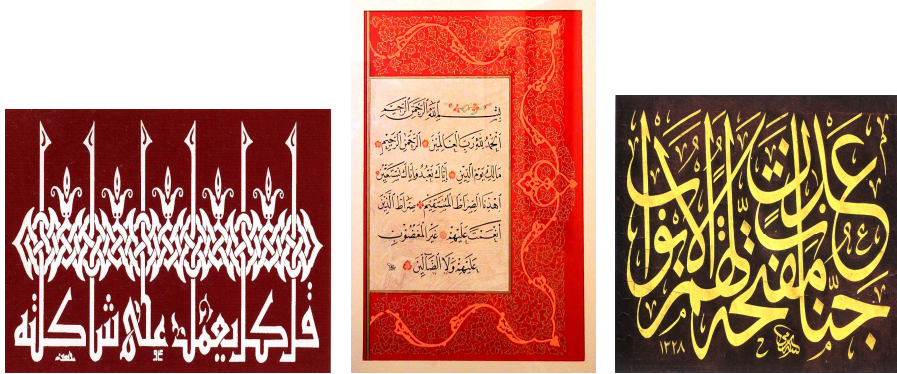 قل كل يعمل على شاكلته
بِسْمِ اللهِ الرَّحْمٰنِ الرَّحِيمِ
اَلْحَمْدُ لِلّٰهِ رَبِّ الْعَالَمِينَ الرَّحْمٰنِ الرَّحِيمِ
مَالِكِ يَوْمِ الدِّينِ إِيَّاكَ نَعْبُدُ وَإِيَّاكَ نَسْتَعِينُ
اِهْدِنَا الصِّرَاطَ الْمُسْتَقِيمَ صِرَاطَ الَّذِينَ
أَنْعَمْتَ عَلَيْهِمْ غَيْرِ الْمَغْضُوبِ
عَلَيْهِمْ وَلَا الضَّالِّينَ
جنّات عدن مفتحة لهم الابواب
١٣٢٨